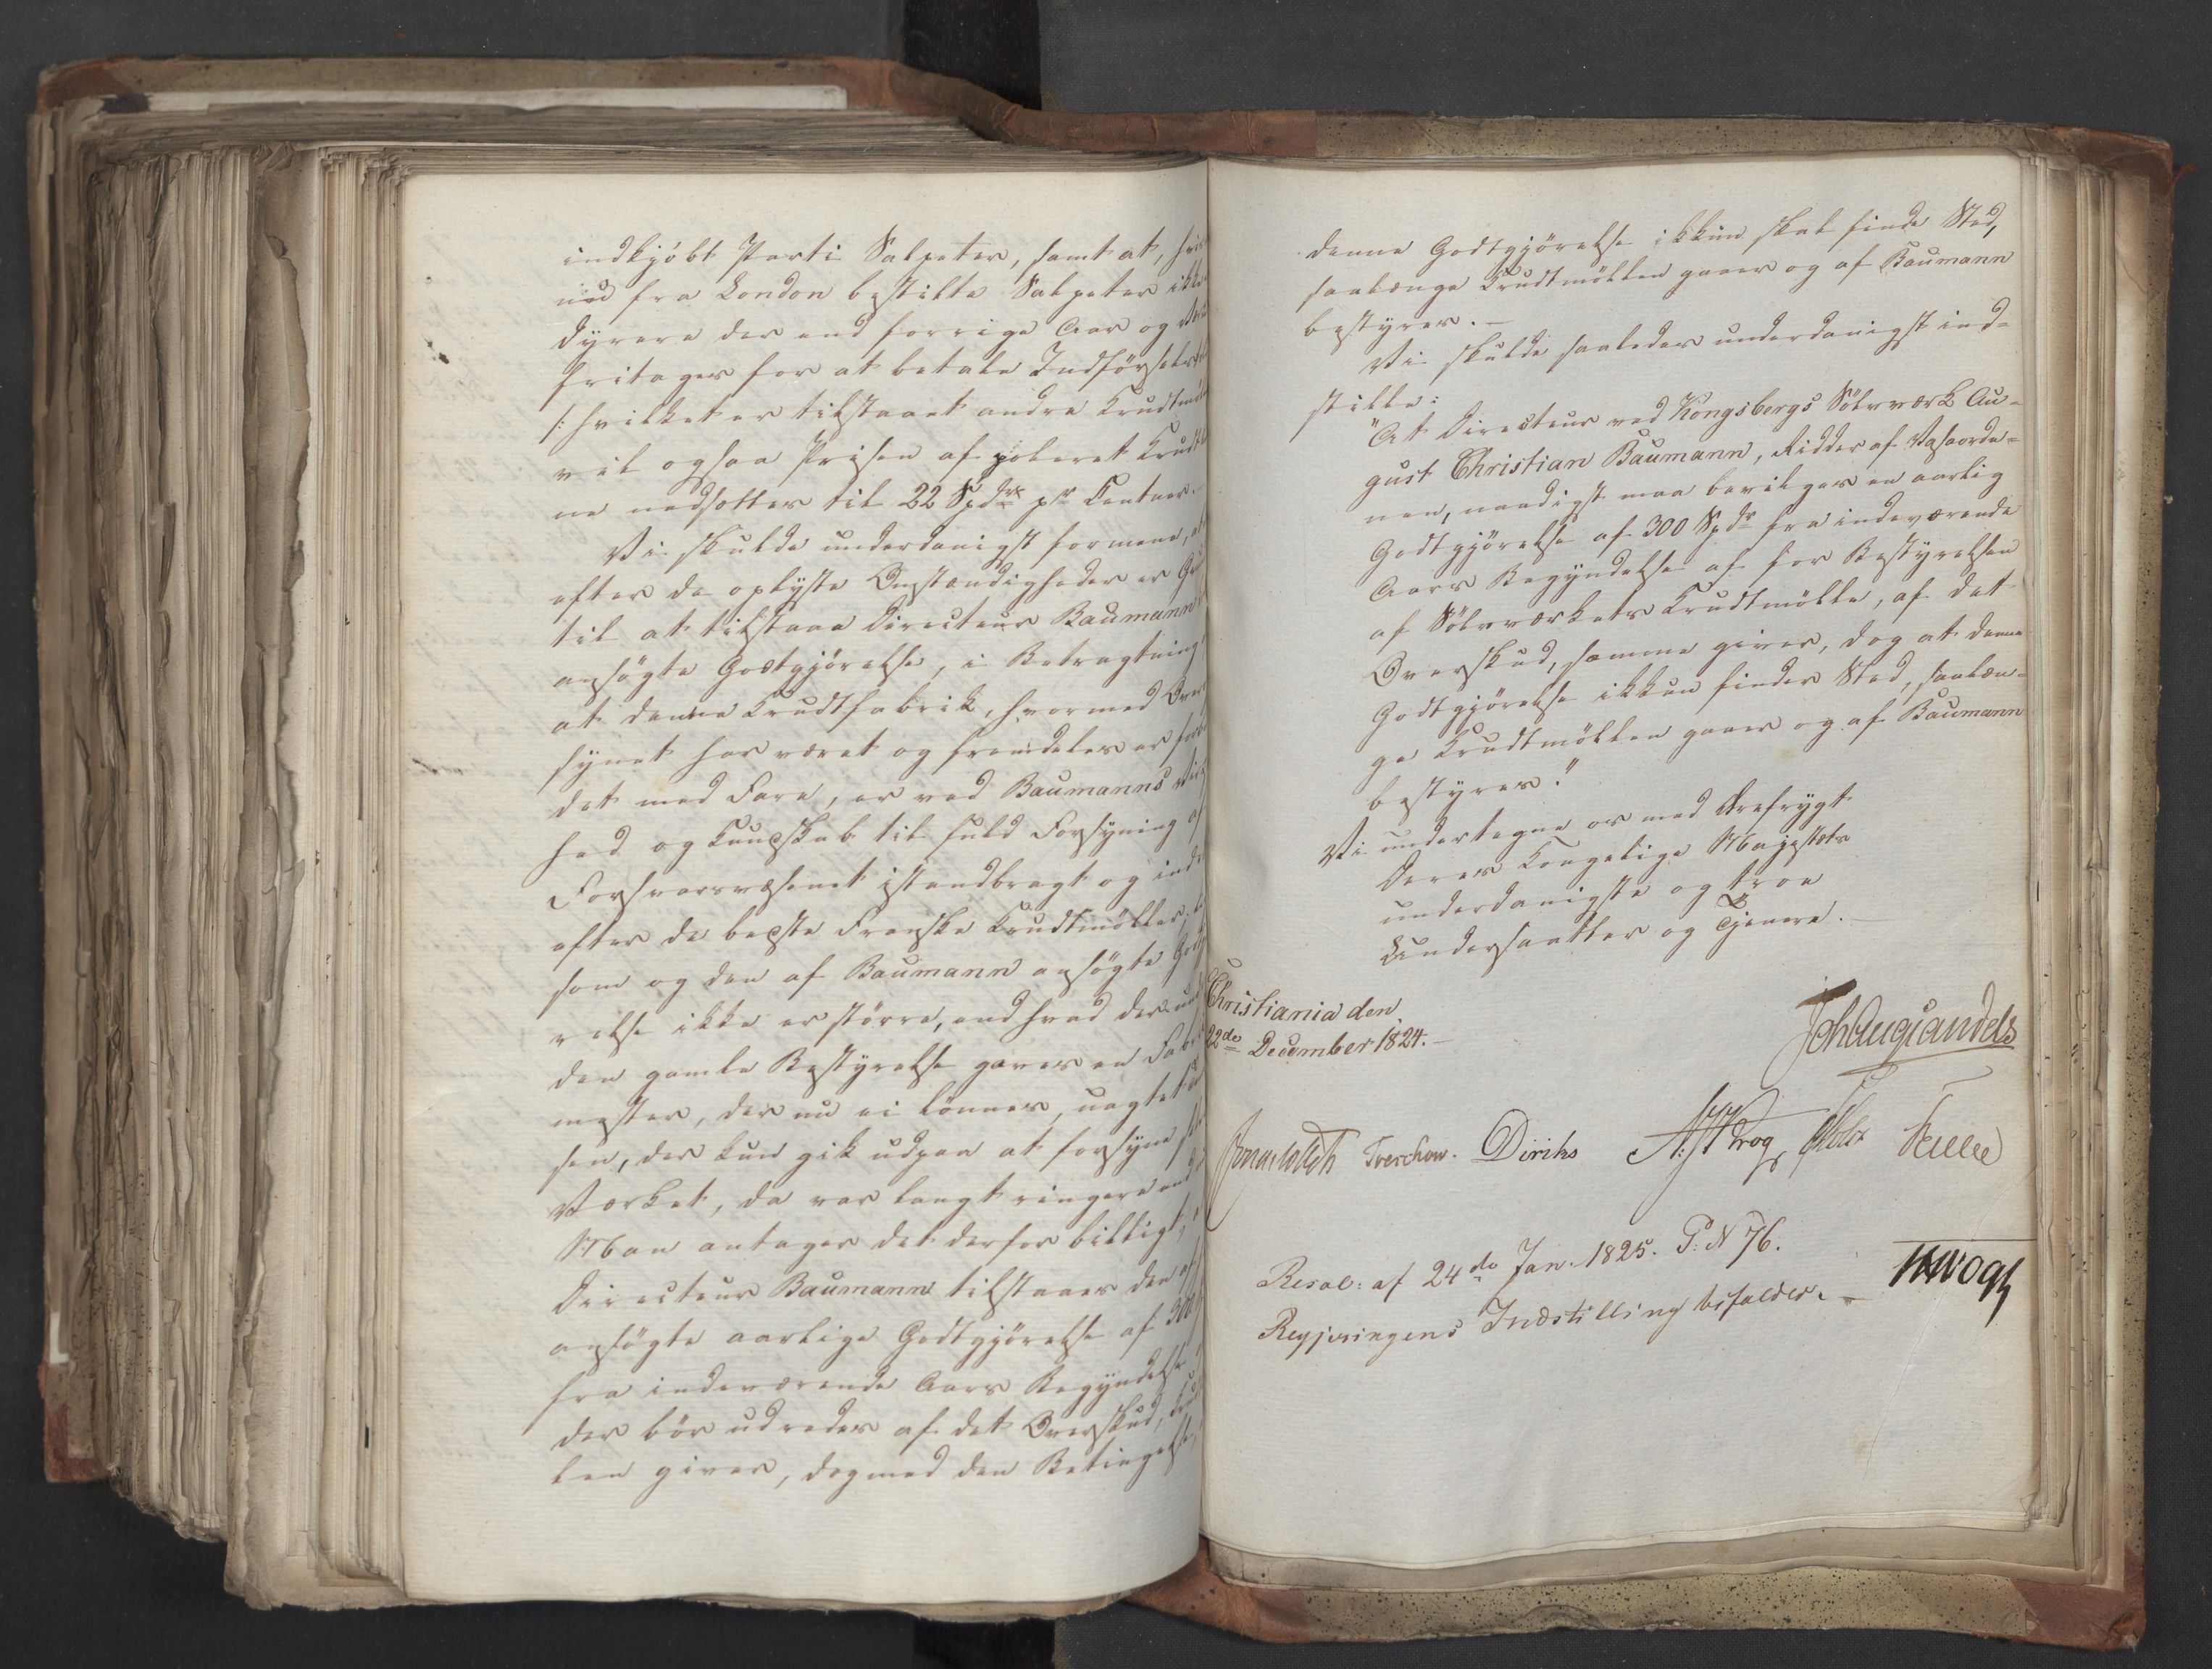 indkjøbt Parti Salpeter, samt at, hvis
nu fra London bestilte Salpeter ikke
dyrere der end forrige Aar og
fritages for at betale Indførsels
/: hvilket er tilstaaet andre Krudtm
vil ogsaa Prisen af poleret Krudt
ne nedsættes til 22 Spdr pr Centner.
Vi skulde underdanigst formene, at
efter de oplyste Omstændigheder er
til at tilstaae Directeur Baumann
ansøgte Godtgjørelse, i Betragtning
at denne Krudtfabrik, hvormed
synet har været og fremdeles er
det med Fare, er ved Baumanns
hed og Kundskab til fuld Forsyning af
Forsvarsvæsenet istandbragt og
efter de beste Franske Krudtmøller,
som og den af Baumann ansøgte
relse ikke er større, end hvad der
den gamle Bestyrelse gaves en
mester, der nu ei lønnes, uagtet
sen, der kun gik udpaa at forsyne
Værket, da var langt ringere end
Man antager det derfor billigt,
Directeur Baumann tilstaaes den af
ansøgte aarlige Godtgjørelse af 300
fra indeværende Aars Begyndelse
der bør udredes af det Overskud,
len giver, dog med den Betingelse,
denne Godtgjørelse ikkun skal finde Sted,
saalænge Krudtmøllen gaaer og af Baumann
bestyres.—
Vi skulde saaledes underdanigst ind-
stille:
"At Directeur ved Kongsbergs Sølvværk Au-
gust Christian Baumann, Ridder af Vasaorde-
nen, naadigst maa bevilges en aarlig
Godtgjørelse af 300 Spdr fra indeværende
Aars Begyndelse af for Bestyrelsen
af Sølvværkets Krudtmølle, af det
Overskud, samme giver, dog at denne
Godtgjørelse ikkun finder Sted, saalæn-
ge Krudtmøllen gaaer og af Baumann
bestyres."
Vi undertegne os med Ærefrygt
Deres Kongelige Majestæts
underdanigste og troe
Undersaatter og Tjenere.
Christiania den
22de December 1824.—
Joh Aug Sandels
Jonas Collett Treschow. Diriks Krog Fasting
Resol: af 24de Jan. 1825. P: N 76.
Regjeringens Indstilling bifaldes.—